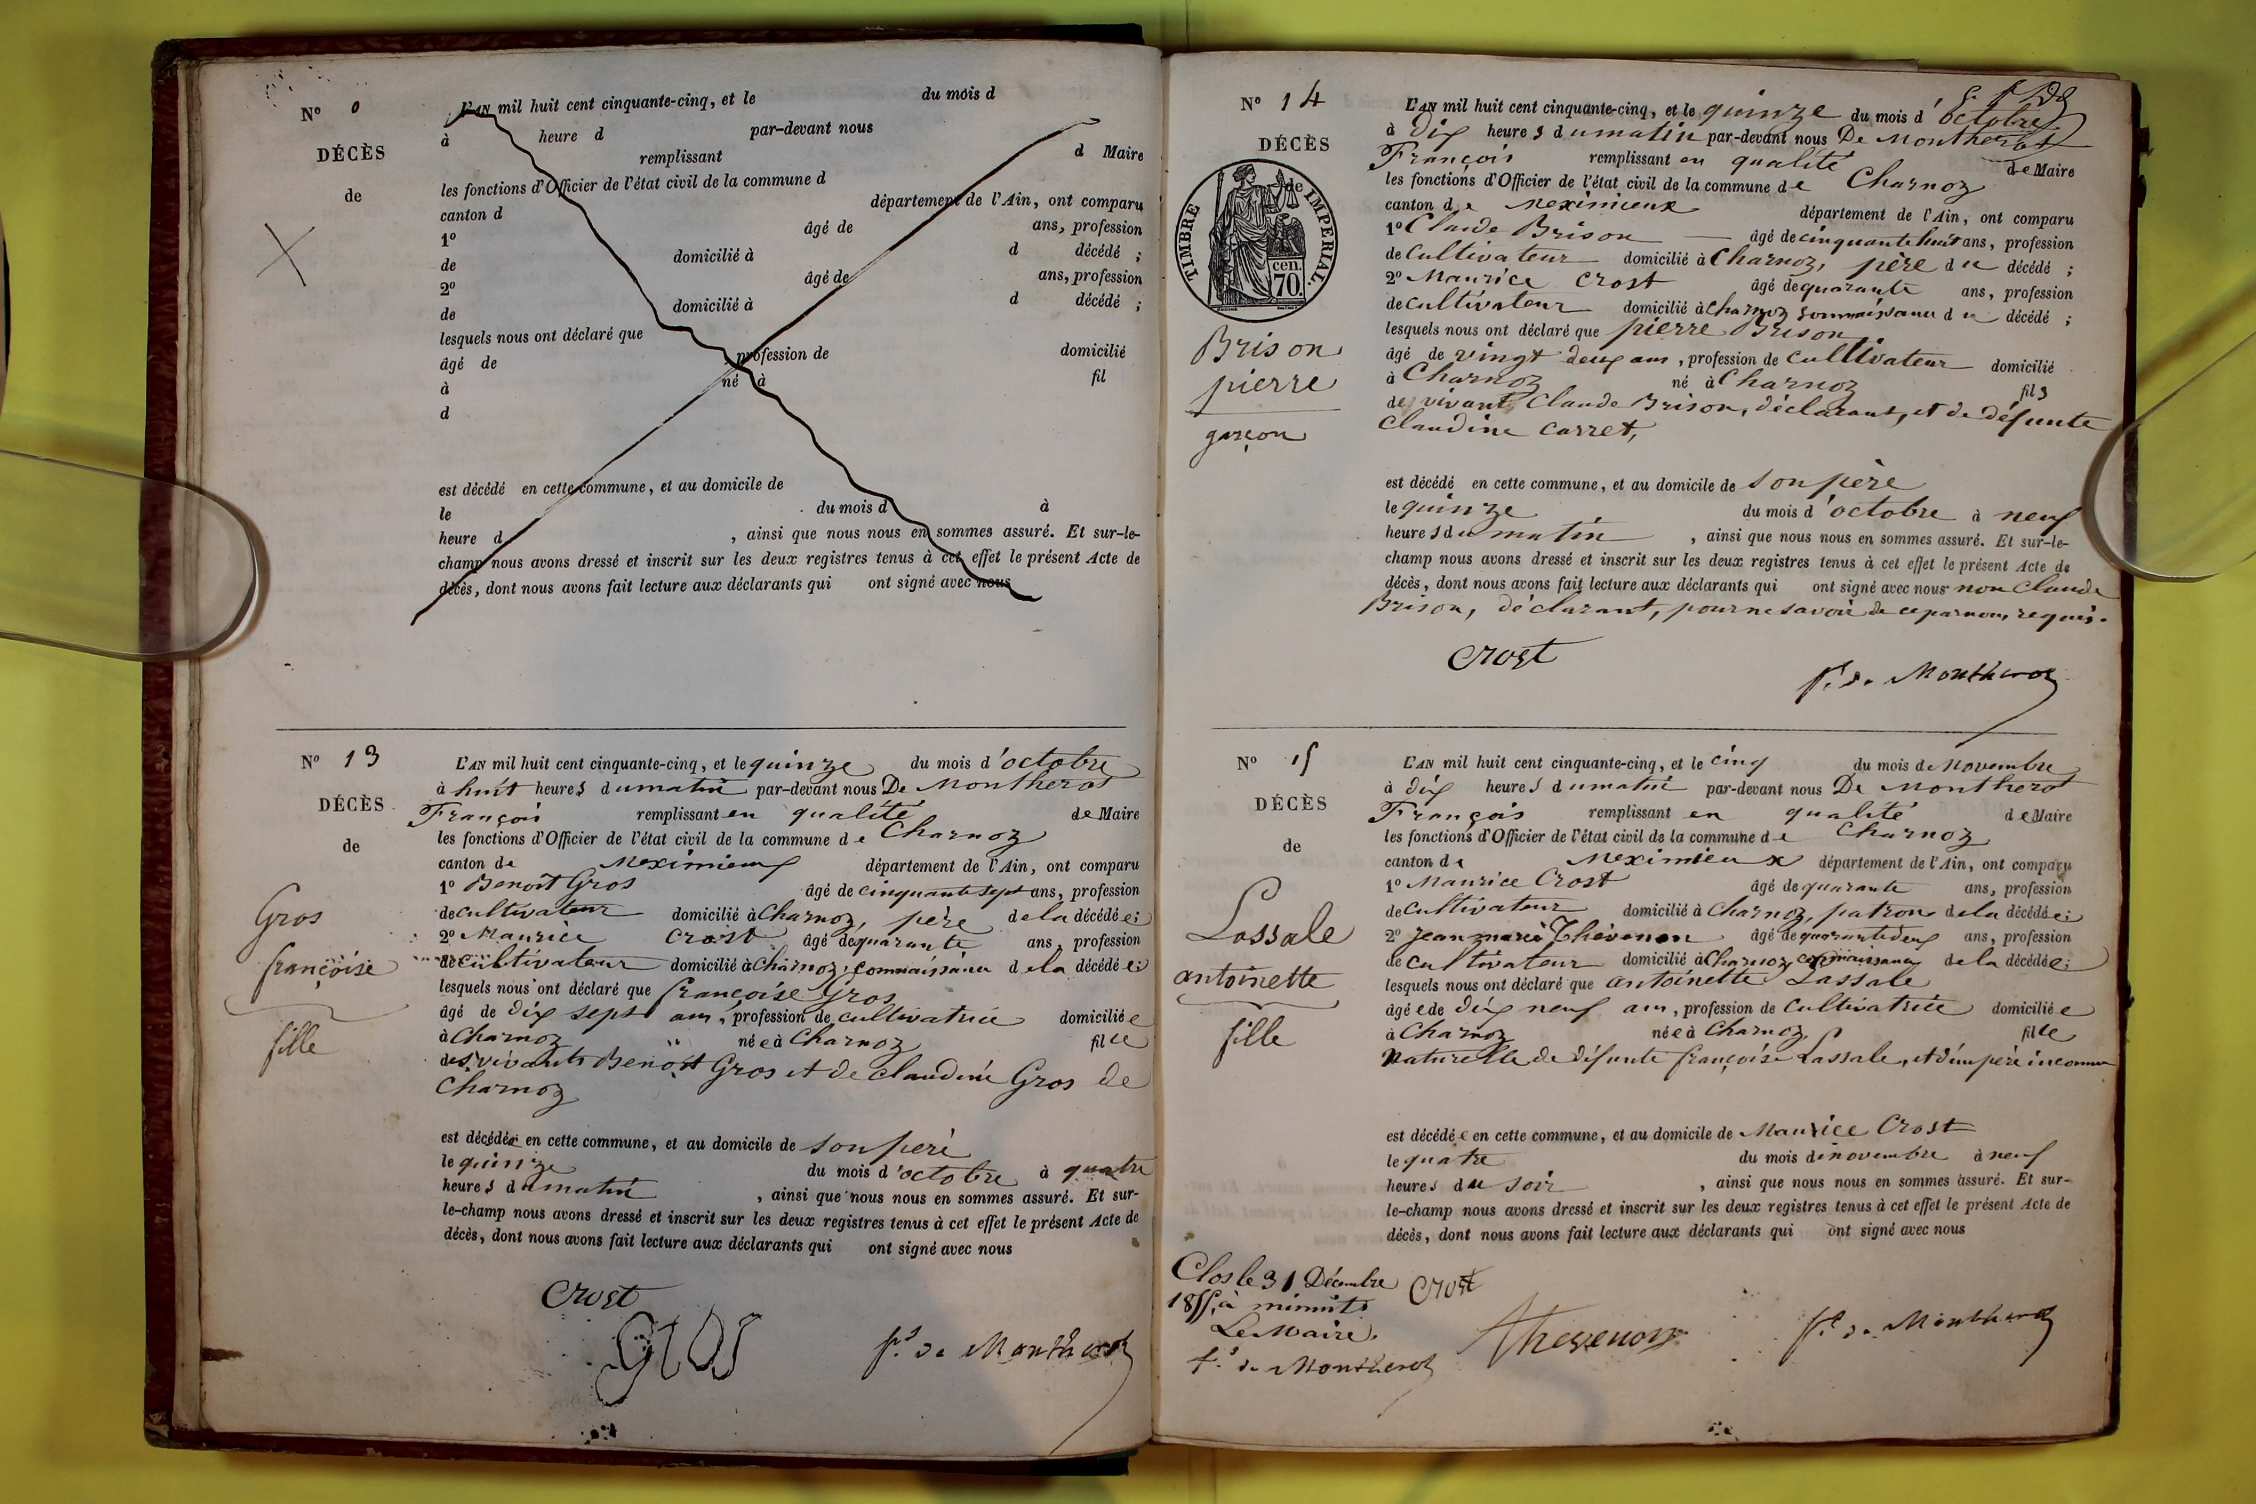 N° 0
DÉCÈS
de
L'AN mil huit cent cinquante-cinq, et le du mois d
à heure d par-devant nous
remplissant d Maire
les fonctions d'Officier de l'état civil de la commune d
canton d département de l'Ain, ont comparu
1° âgé de ans, profession
de domicilié à d décédé ;
2° âgé de ans, profession
de domicilié à d décédé ;
lesquels nous ont déclaré que
âgé de profession de domicilié
à né à fil
d
est décédé en cette commune, et au domicile de
le du mois d à
heure d , ainsi que nous nous en sommes assuré. Et sur-le-
champ nous avons dressé et inscrit sur les deux registres tenus à cet effet le présent Acte de
décès, dont nous avons fait lecture aux déclarants qui ont signé avec nous
N° 13
DÉCÈS
de
Gros
françoise
fille
L'AN mil huit cent cinquante-cinq, et le quinze du mois d'octobre
à huit heures du matin par-devant nous De Montherot
François remplissant en qualité de Maire
les fonctions d'Officier de l'état civil de la commune de Charnoz
canton de Meximieux département de l'Ain, ont comparu
1° Benoit Gros âgé de cinquante sept ans, profession
de cultivateur domicilié à Charnoz, père de la décédée;
2° Maurice Crost âgé de quarante ans, profession
de cultivateur domicilié à Charnoz, connaissance de la décédée;
lesquels nous ont déclaré que françoise Gros
âgé de dix sept ans, profession de cultivatrice domiciliée
à Charnoz née à Charnoz fille
des vivants Benoit Gros et de claudine Gros de
Charnoz
est décédée en cette commune, et au domicile de son père
le quinze du mois d'octobre à quatre
heures du matin , ainsi que nous nous en sommes assuré. Et sur-
le-champ nous avons dressé et inscrit sur les deux registres tenus à cet effet le présent Acte de
décès, dont nous avons fait lecture aux déclarants qui ont signé avec nous
Crost
gros
f.s de Montherot
N° 14
DÉCÈS
de
TIMBRE IMPERIAL.
70. cen.
Brison
pierre
garçon
L'AN mil huit cent cinquante-cinq, et le quinze du mois d'octobre
à dix heures du matin par-devant nous De Montherot
François remplissant en qualité de Maire
les fonctions d'Officier de l'état civil de la commune de Charnoz
canton de Meximieux département de l'Ain, ont comparu
1° Claude Brison âgé de cinquante huit ans, profession
de cultivateur domicilié à Charnoz, père du décédé ;
2° Maurice Crost âgé de quarante ans, profession
de cultivateur domicilié à Charnoz connaissance du décédé ;
lesquels nous ont déclaré que pierre Brison
âgé de vingt deux ans, profession de cultivateur domicilié
à Charnoz né à Charnoz fils
de vivant Claude Brison, déclarant, et de défunte
Claudine Carret,
est décédé en cette commune, et au domicile de son père
le quinze du mois d'octobre à neuf
heures du matin , ainsi que nous nous en sommes assuré. Et sur-le-
champ nous avons dressé et inscrit sur les deux registres tenus à cet effet le présent Acte de
décès, dont nous avons fait lecture aux déclarants qui ont signé avec nous non Claude
Brison, déclarant, pour ne savoir de ce par nous requis.
Crost
f.s de Montherot
N° 15
DÉCÈS
de
Lassale
antoinette
fille
L'AN mil huit cent cinquante-cinq, et le cinq du mois de Novembre
à dix heures du matin par-devant nous De Montherot
François remplissant en qualité de Maire
les fonctions d'Officier de l'état civil de la commune de Charnoz
canton de Meximieux département de l'Ain, ont comparu
1° Maurice Crost âgé de quarante ans, profession
de cultivateur domicilié à Charnoz, patron de la décédée;
2° Jean marie Thévenon âgé de quarante deux ans, profession
de cultivateur domicilié à Charnoz connaissance de la décédée;
lesquels nous ont déclaré que antoinette Lassale
âgée de dix neuf ans, profession de cultivatrice domiciliée
à Charnoz née à Charnoz, fille
Naturelle de défunte françoise Lassale, et d'un père inconnu
est décédée en cette commune, et au domicile de Maurice Crost
le quatre du mois de novembre à neuf
heures du soir , ainsi que nous nous en sommes assuré. Et sur-
le-champ nous avons dressé et inscrit sur les deux registres tenus à cet effet le présent Acte de
décès, dont nous avons fait lecture aux déclarants qui ont signé avec nous
Clos le 31 Décembre
1855, à minuit.
Le Maire.
f.s de Montherot
Crost
thevenon
f.s de Montherot